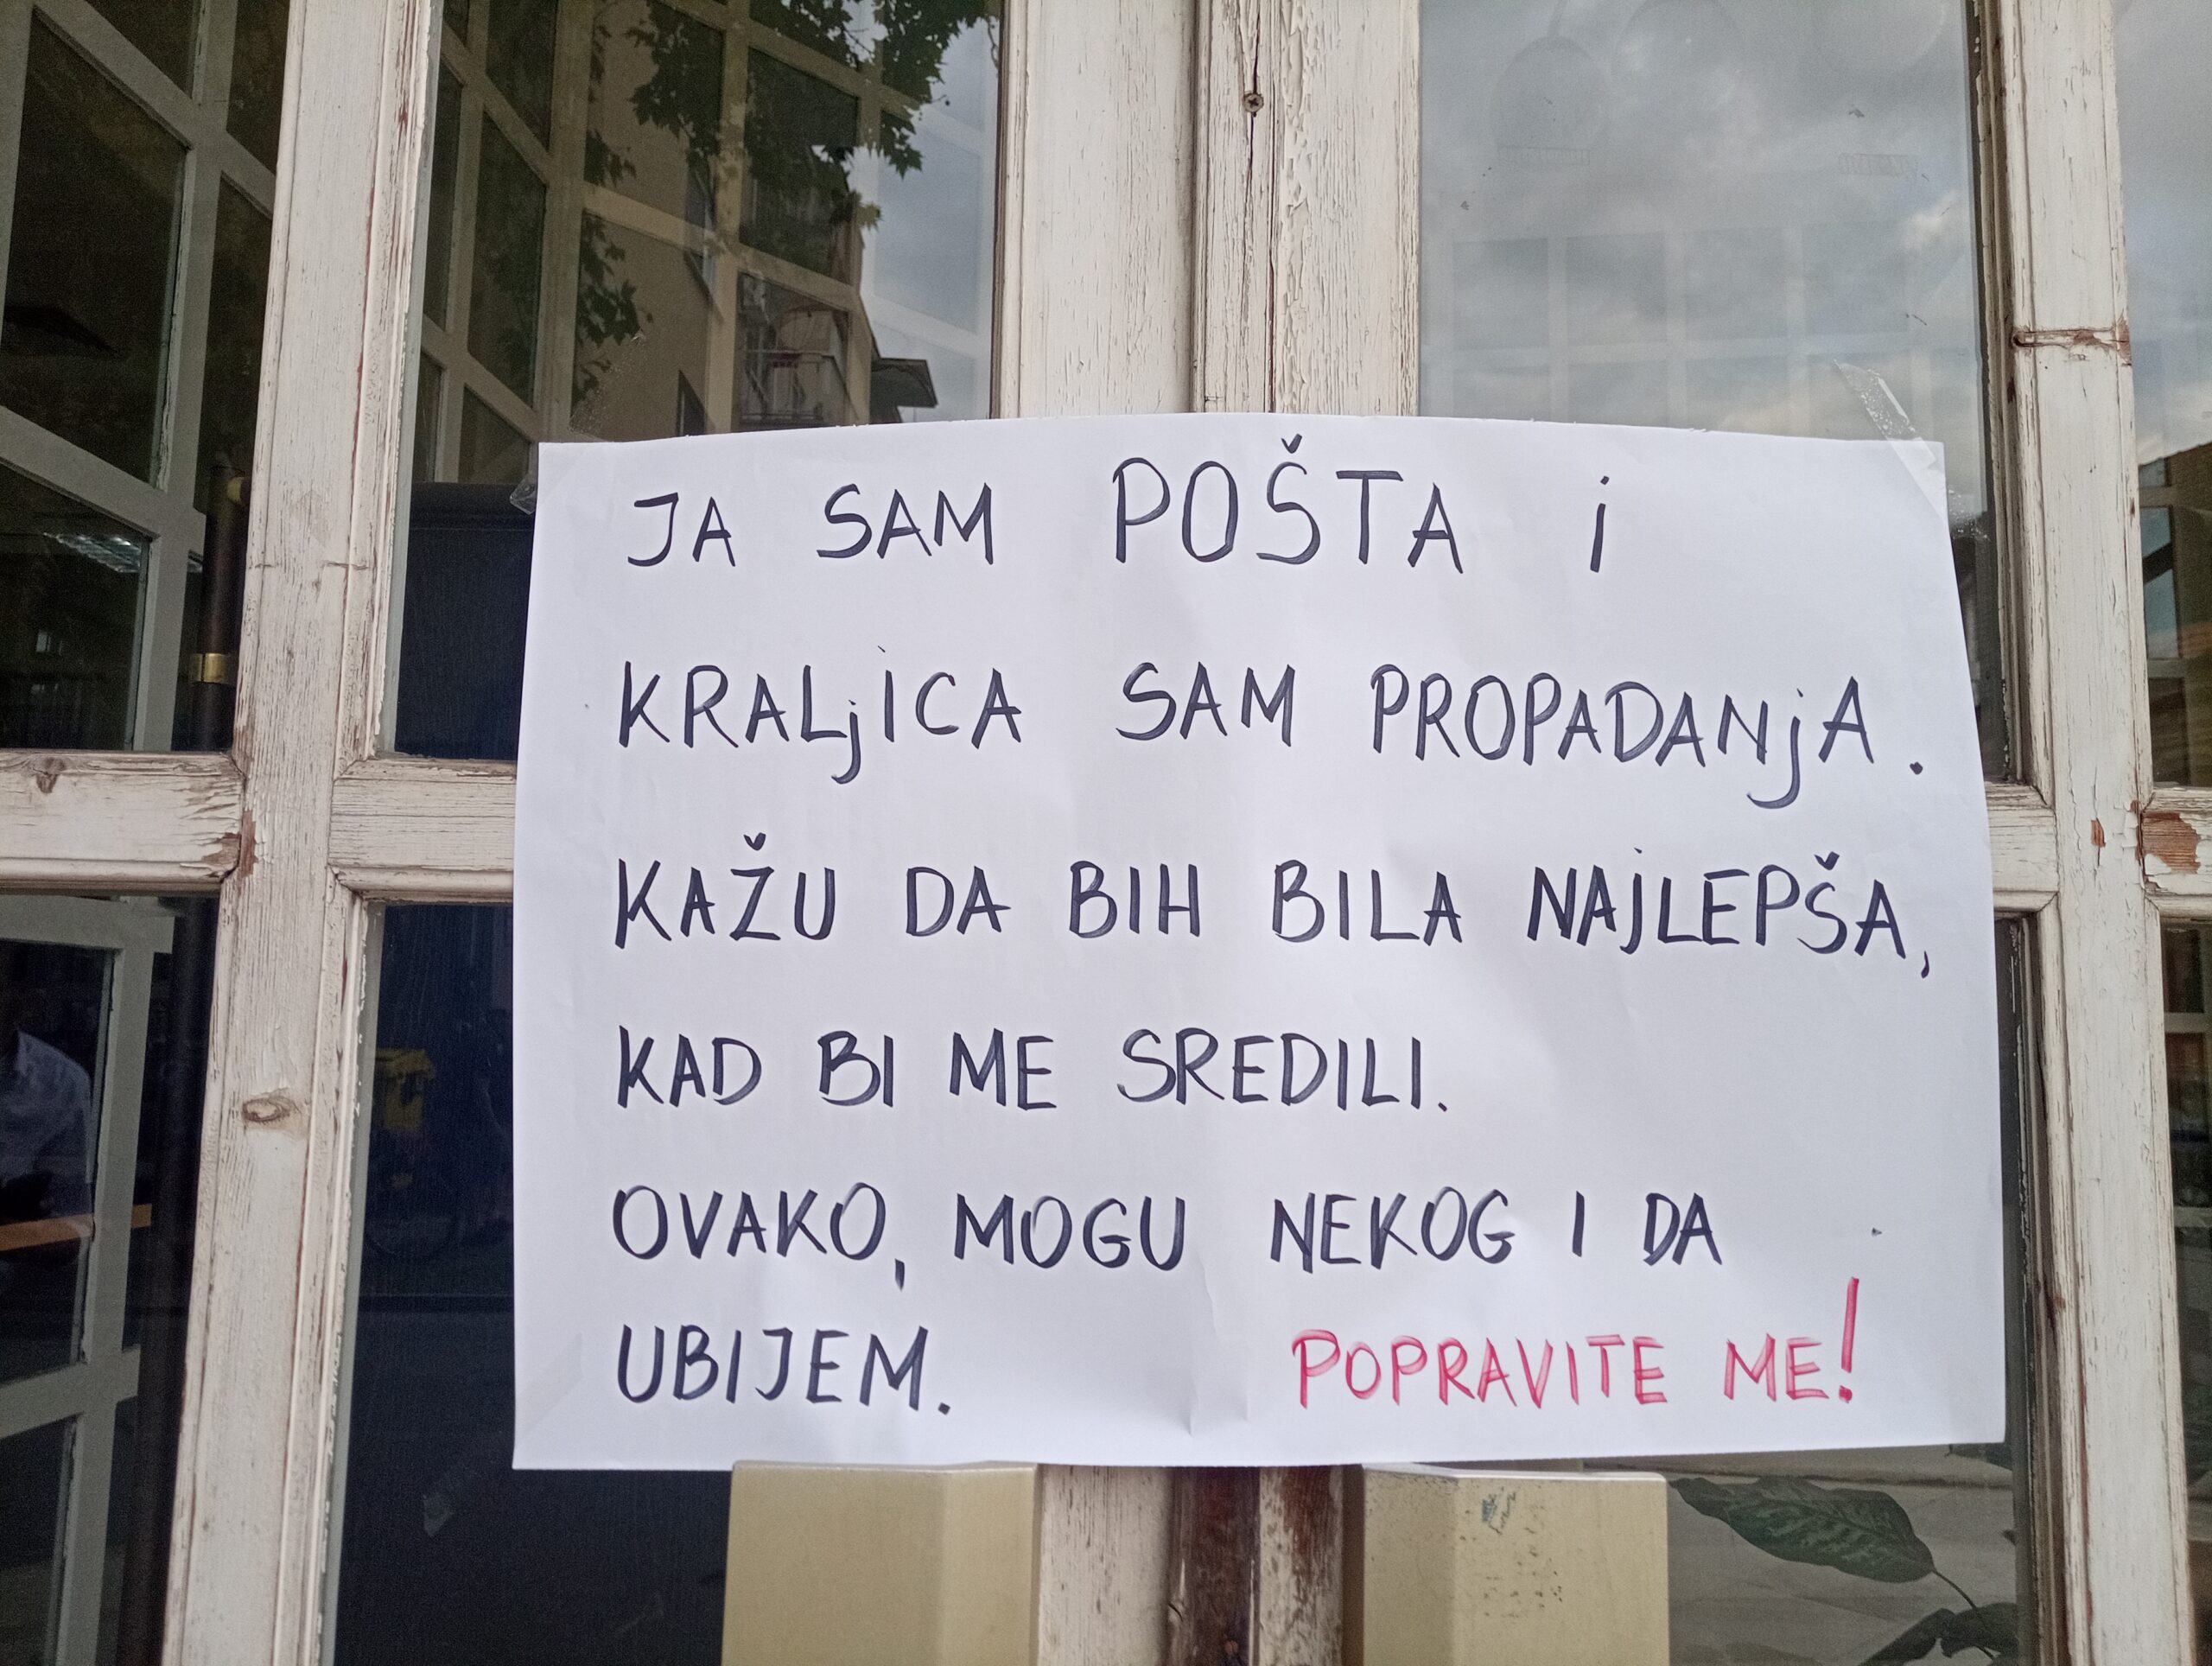 JA SAM POŠTA i
KRALjICA SAM PROPADANjA.
KAŽU DA BIH BILA NAJLEPŠA,
KAD BI ME SREDILI.
OVAKO, MOGU NEKOG I DA
UBIJEM. POPRAVITE ME!